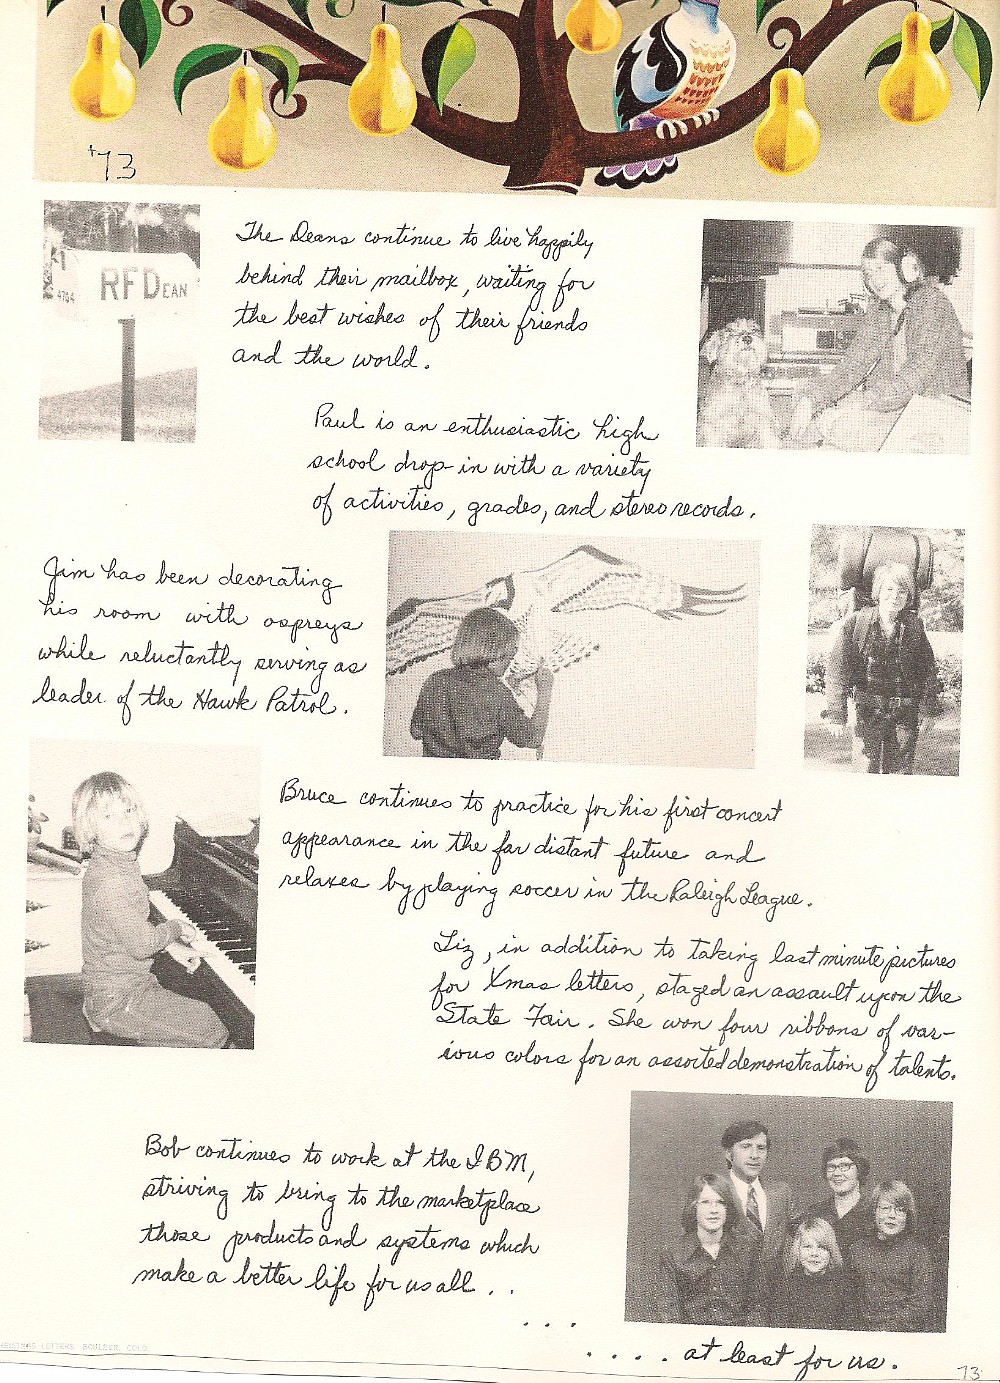 '73
RFDEAN
4704
The Deans continue to live happily
behind their mailbox, waiting for
the best wishes of their friends
and the world.
Paul is an enthusiastic high
school drop-in with a variety
of activities, grades, and stereo records.
Jim has been decorating
his room with ospreys
while reluctantly serving as
leader of the Hawk Patrol.
Bruce continues to practice for his first concert
appearance in the far distant future and
relaxes by playing soccer in the Raleigh League.
Liz, in addition to taking last minute pictures
for Xmas letters, staged an assault upon the
State Fair. She won four ribbons of var-
ious colors for an assorted demonstration of talents.
Bob continues to work at the IBM,
striving to bring to the marketplace
those products and systems which
make a better life for us all . .
. . .
. . . . at least for us.
LETTERS, BOULDER, COLO.
73